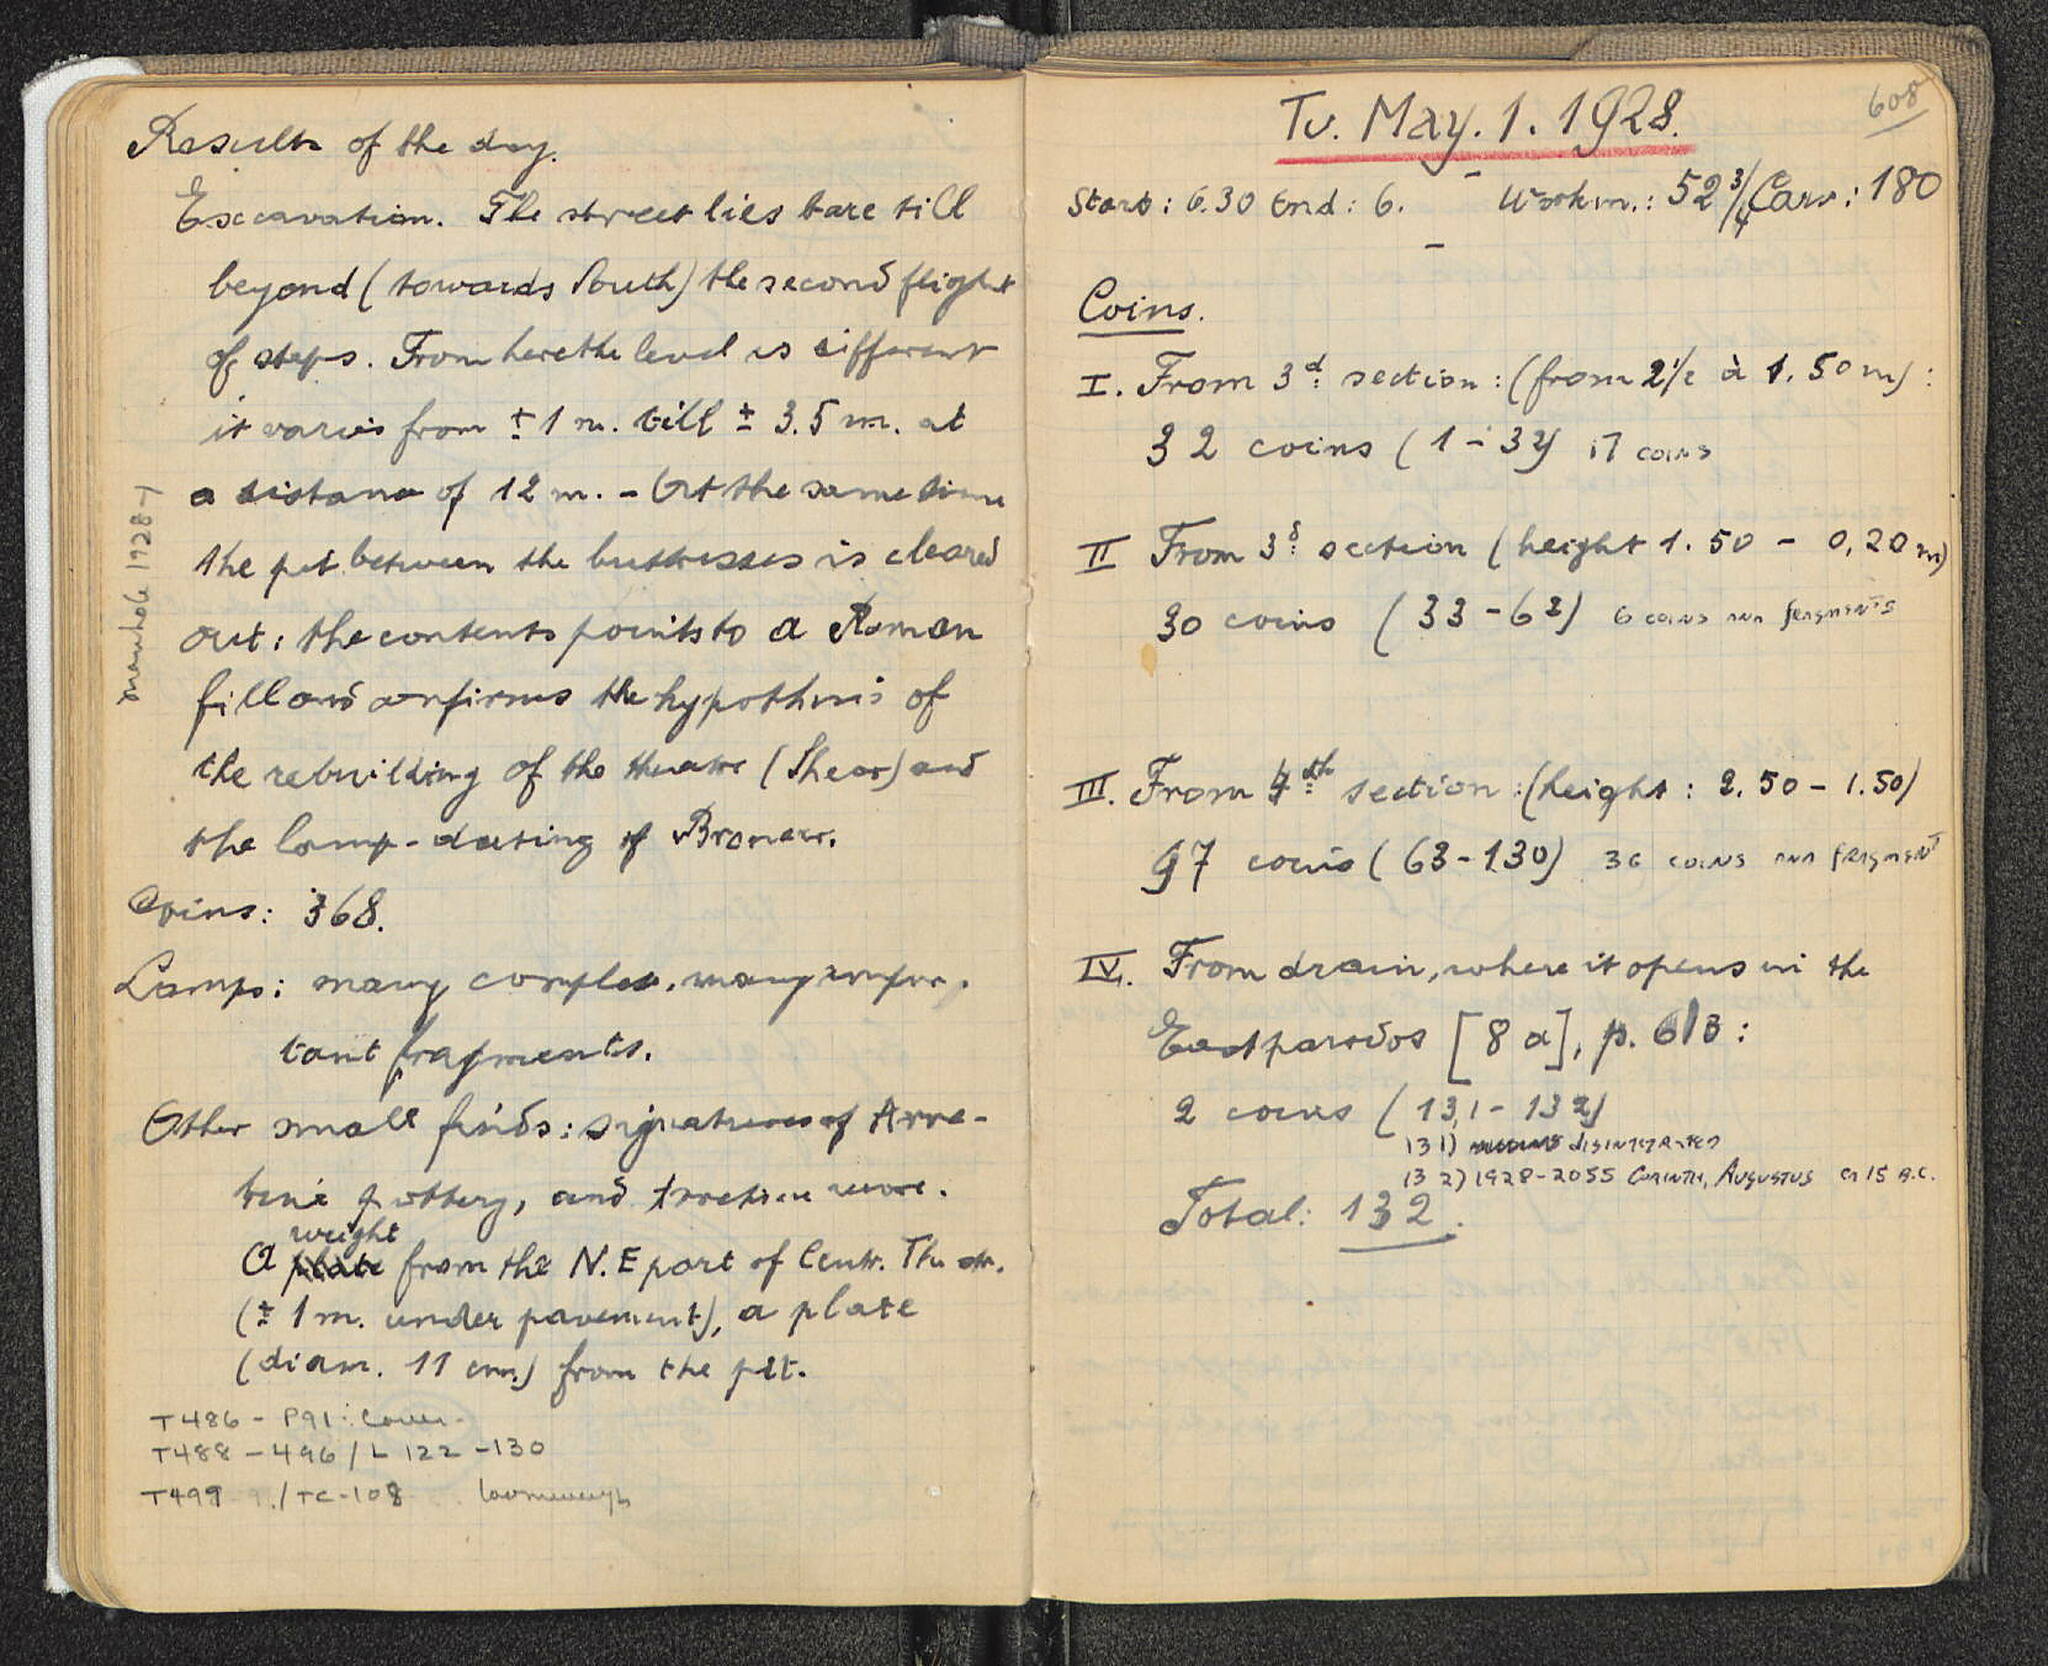 Results of the day.
Excavation. The street lies bare till
beyond (towards South) the second flight
of steps. From here the level is different
it varies from ± 1 m. till ± 3.5 m. at
a distance of 12 m. - At the same time
the pit between the buttresses is cleared
out: the contents points to a Roman
fill and confirms the hypothesis of
the rebuilding of the theatre (Shear) and
the lamp-dating of Broneer.
Coins: 368.
Lamps: many complete, many impor-
tant fragments.
Other small finds: signatures of Arre-
tine pottery, and Arretine ware.
weight
A plate from the N.E part of Centr. Theatr.
(± 1 m. under pavement), a plate
(diam. 11 cm.) from the pit.
T486 - P91: Cover
T488 - 496 / L 122 - 130
T499 / TC-108
manhole 1928-1
608
Tu. May. 1. 1928.
Start: 6.30 End: 6. - Workm.: 52 3/4 Cars: 180
Coins.
I. From 3d section: (from 2 1/2 à 1.50 m):
32 coins (1 - 32) 17 coins
II From 3d section (height 1.50 - 0,20 m)
30 coins (33 - 62) 6 coins and fragments
III. From 4th section: (height: 2.50 - 1.50)
97 coins (63 - 130) 36 coins and fragment
IV. From drain, where it opens in the
East parodos [8 a], p. 613:
2 coins (131 - 132)
131) disintegrated
132) 1928-2055 Corinth, Augustus ca 15 B.C.
Total: 132.